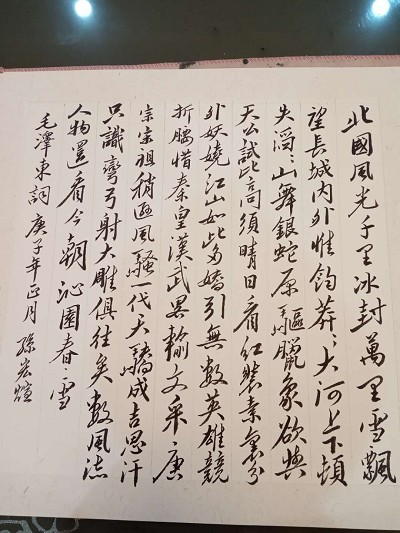 北國風光千里冰封萬里雪飄
望長城內外惟餘莽〻大河上下頓
失滔〻山舞銀蛇原驅臘象欲與
天公試比高須晴日看紅裝素裹分
外妖嬈江山如此多嬌引無數英雄競
折腰惜秦皇漢武畧輸文采唐
宗宋祖稍遜風騷一代天驕成吉思汗
只識彎弓射大雕俱往矣數風流
人物還看今朝 沁園春·雪
毛澤東詞 庚子年正月